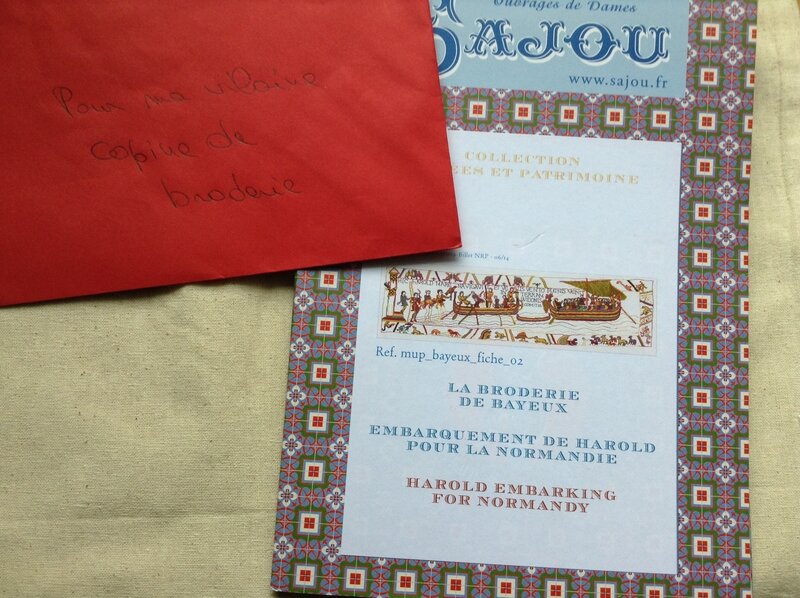 Pour ma vilaine
copine de
broderie
Ouvrages de Dames
SAJOU
www.sajou.fr
COLLECTION
ET PATRIMOINE
Billet NRP - 06/14
Ref. mup_bayeux_fiche_02
LA BRODERIE
DE BAYEUX
EMBARQUEMENT DE HAROLD
POUR LA NORMANDIE
HAROLD EMBARKING
FOR NORMANDY